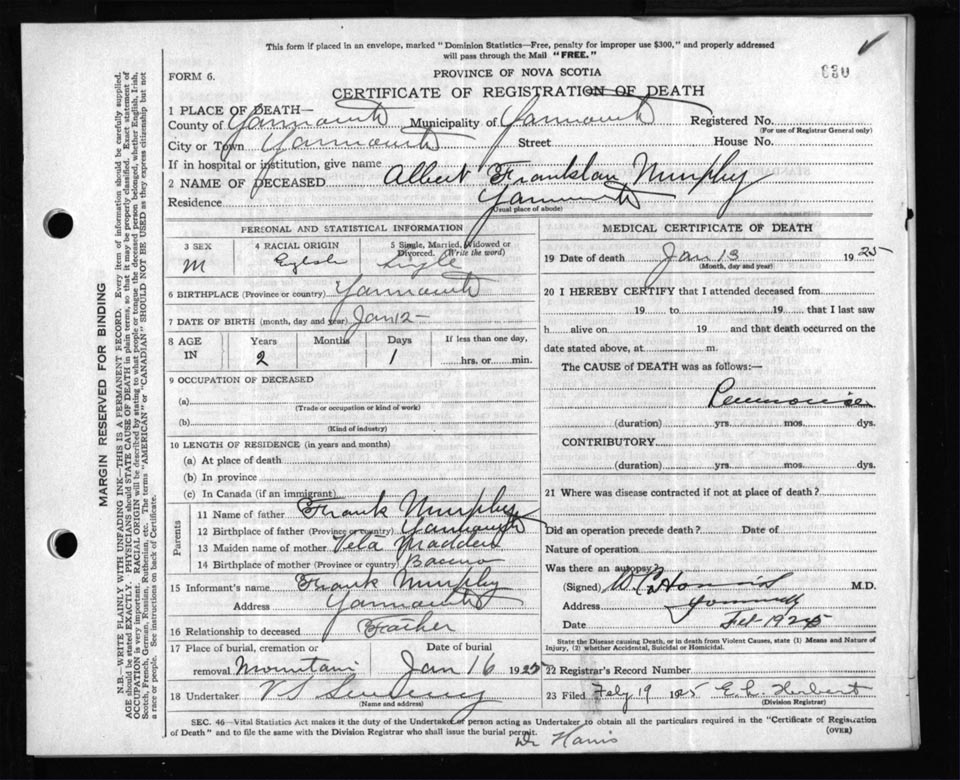 This form if placed in an envelope, marked "Dominion Statistics—Free, penalty for improper use $300," and properly addressed
will pass through the Mail "FREE."
FORM 6.
PROVINCE OF NOVA SCOTIA
CERTIFICATE OF REGISTRATION OF DEATH
1 PLACE OF DEATH—
County of Yarmouth Municipality of Yarmouth Registered No.
(For use of Registrar General only)
City or Town Yarmouth Street House No.
If in hospital or institution, give name
2 NAME OF DECEASED Albert Franklan Murphy
Residence Yarmouth
(Usual place of abode)
MARGIN RESERVED FOR BINDING
N.B.—WRITE PLAINLY WITH UNFADING INK—THIS IS A PERMANENT RECORD. Every item of information should be carefully supplied.
AGE should be stated EXACTLY. PHYSICIANS should STATE CAUSE OF DEATH in plain terms, so that it may be properly classified. Exact statement of
OCCUPATION is very important. RACIAL ORIGIN will be described by stating to what people or tongue the deceased person belonged, whether English, Irish,
Scotch, French, German, Russian, Ruthenian, etc. The terms "AMERICAN" or "CANADIAN" SHOULD NOT BE USED as they express citizenship but not
a race or people. See instructions on back of Certificate.
PERSONAL AND STATISTICAL INFORMATION
3 SEX 4 RACIAL ORIGIN 5 Single, Married, Widowed or
Divorced. (Write the word)
M Single
6 BIRTHPLACE (Province or country) Yarmouth
7 DATE OF BIRTH (month, day and year) Jan 12 -
8 AGE
IN
Years Months Days If less than one day,
2 1 hrs. or min.
9 OCCUPATION OF DECEASED
(a)
(Trade or occupation or kind of work)
(b)
(Kind of industry)
10 LENGTH OF RESIDENCE (in years and months)
(a) At place of death
(b) In province
(c) In Canada (if an immigrant)
Parents
11 Name of father Frank Murphy
12 Birthplace of father (Province or country) Yarmouth
13 Maiden name of mother Madden
14 Birthplace of mother (Province or country)
15 Informant's name Frank Murphy
Address Yarmouth
16 Relationship to deceased Father
17 Place of burial, cremation or Date of burial
removal Mountain Jan 16 1925
18 Undertaker
(Name and address)
MEDICAL CERTIFICATE OF DEATH
19 Date of death Jan 13 1925
(Month, day and year)
20 I HEREBY CERTIFY that I attended deceased from
19 to 19 that I last saw
h alive on 19 and that death occurred on
date stated above, at m.
The CAUSE of DEATH was as follows:—
(duration) yrs. mos. dys.
CONTRIBUTORY
(duration) yrs. mos. dys.
21 Where was disease contracted if not at place of death?
Did an operation precede death? Date of
Nature of operation
Was there an autopsy?
(Signed) M.D.
Address Yarmouth
Date Feb 1925
State the Disease causing Death, or in death from Violent Causes, state (1) Means and Nature of
Injury, (2) whether Accidental, Suicidal or Homicidal.
22 Registrar's Record Number
23 Filed Feby 19 1925 Herbert
(Division Registrar)
SEC. 46—Vital Statistics Act makes it the duty of the Undertaker or person acting as Undertaker to obtain all the particulars required in the "Certificate of Registration
of Death" and to file the same with the Division Registrar who shall issue the burial permit. (OVER)
Dr Harris